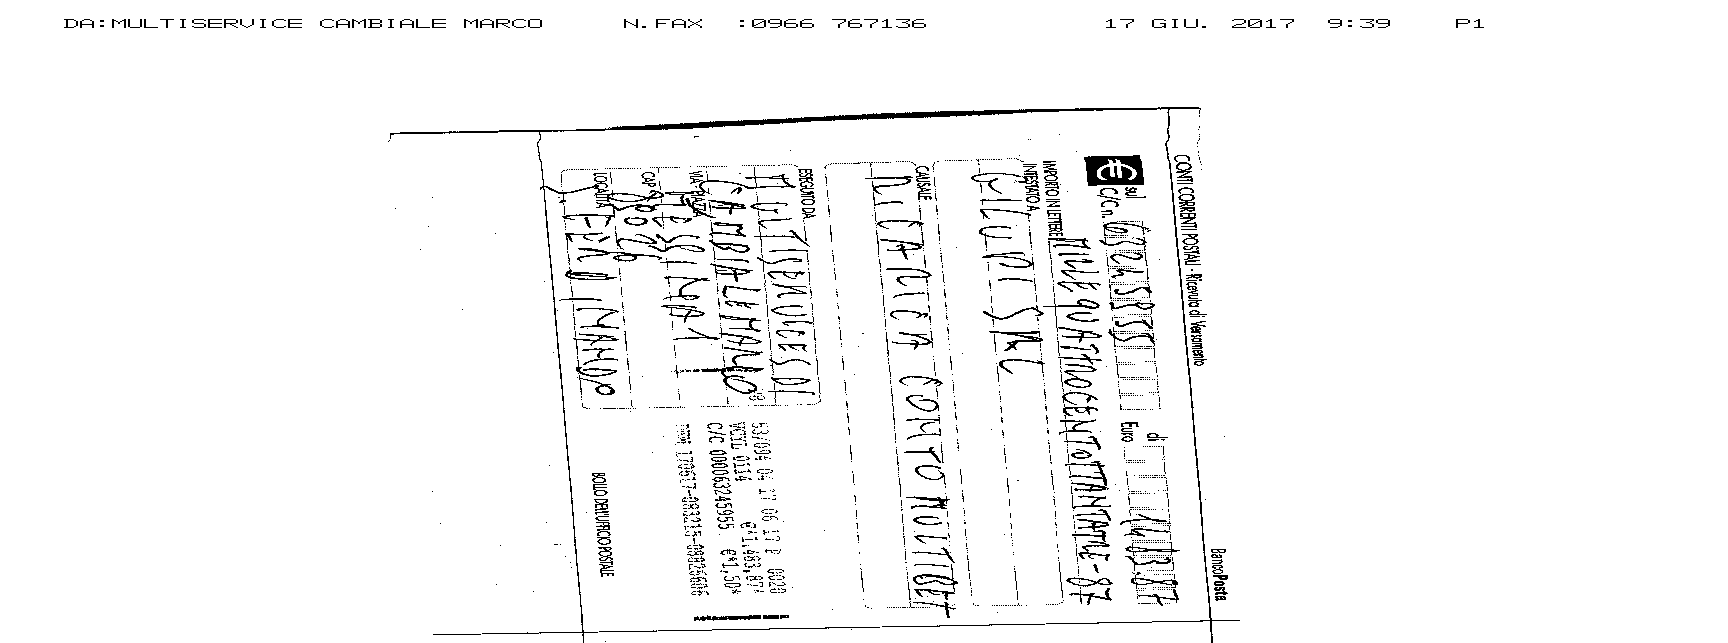 DA:MULTISERVICE CAMBIALE MARCO N.FAX :0966 767136 17 GIU. 2017 9:39 P1
CONTI CORRENTI POSTALI - Ricevuta di Versamento BancoPosta
€ sul C/C n. 63245955 di Euro 1483.87
IMPORTO IN LETTERE MILLEQUATTROCENTOTTANTATRE-87
INTESTATO A
CAUSALE
RICARICA CONTO MULTIBET
ESEGUITO DA
MULTISERVICES DI
CAMBIALE MARCO
VIA - PIAZZA
CAP
LOCALITÀ
S. FERDINANDO
53/094 04 17 06 17 P 0020
VCYL 0114 €*1,483,87*
C/C 000063245955 €*1,50*
BOLLO DELL'UFFICIO POSTALE